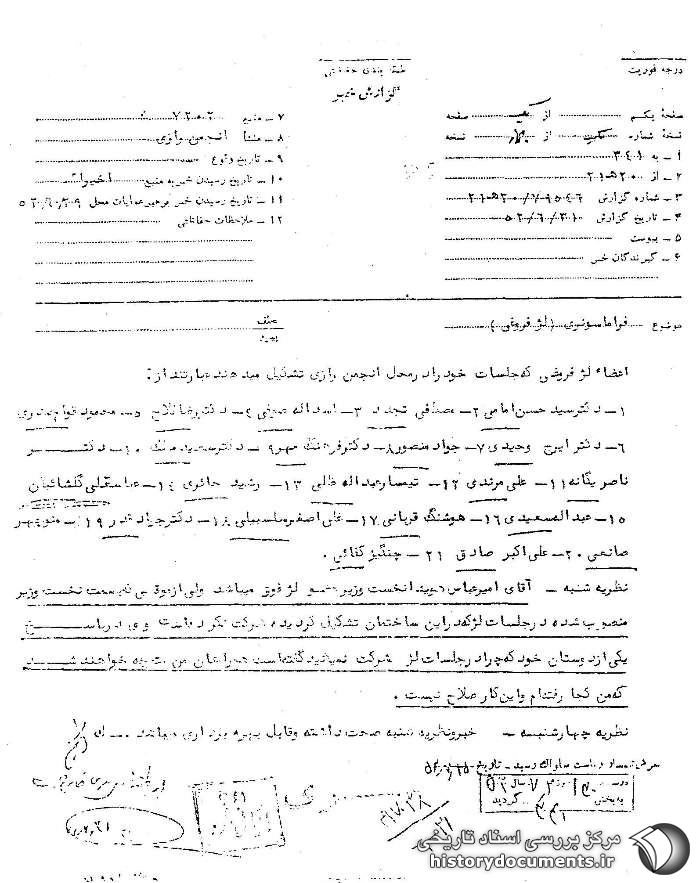 درجه فوریت
طبقه بندی حفاظتی
گزارش خبر
صفحه یکم از یک صفحه
نسخه شماره یک از چهار نسخه
۱ - به ۳۴۱
۲ - از ۲۰هـ۲۰۰
۳ - شماره گزارش ۷۹۵۴۶/۲۰هـ۲۰
۴ - تاریخ گزارش ۵۲/۶/۳۱۰
۵ - پیوست
۶ - گیرندگان خبر
۷ - منبع ۷۲۰۰۲
۸ - منشأ انجمن رازی
۹ - تاریخ وقوع
۱۰ - تاریخ رسیدن خبر به منبع اخیرا
۱۱ - تاریخ رسیدن خبر به رهبر عملیات محل ۵۲/۶/۲۰۹
۱۲ - ملاحظات حفاظتی
موضوع فراماسونری (لژ فروغی)
عطف
پیرو
اعضاء لژ فروغی که جلسات خود را در محل انجمن رازی تشکیل میدهند عبارتند از:
۱- دکتر سید حسن امامی ۲- مصطفی تجدد ۳- اسداله صوفی ۴- دکتر رضا فلاح ۵- محمود قوام صدری
۶- دکتر ایرج وحیدی ۷- جواد منصور ۸- دکتر فرهنگ مهر ۹- دکتر سعید مالک ۱۰- دکتر
ناصر یگانه ۱۱- علی مرندی ۱۲- تیمسار عبداله ظلی ۱۳- رشید حائری ۱۴- عباسقلی گلشائیان
۱۵- عبدالمسعیدی ۱۶- هوشنگ قربانی ۱۷- علی اصغر سلسبیلی ۱۸- دکتر جواد صدر ۱۹- منوچهر
صانعی ۲۰- علی اکبر صادق ۲۱- چنگیز کنائی.
نظریه شنبه - آقای امیرعباس هویدا نخست وزیر عضو لژ فوق میباشد ولی از موقعی که بسمت نخست وزیر
منصوب شده در جلسات لژ که در این ساختمان تشکیل گردیده شرکت نکرده است وی در پاسخ
یکی از دوستان خود که چرا در جلسات لژ شرکت نمیکنید گفته است همراهان من متوجه خواهند شد
که من کجا رفته ام و این کار صلاح نیست.
نظریه چهارشنبه - خبر و نظریه شنبه صحت داشته و قابل بهره برداری میباشد.
بعرض تیمسار ریاست ساواک رسید - تاریخ
در سال ۵۲
به بخش گردید
مرکز بررسی اسناد تاریخی
historydocuments.ir